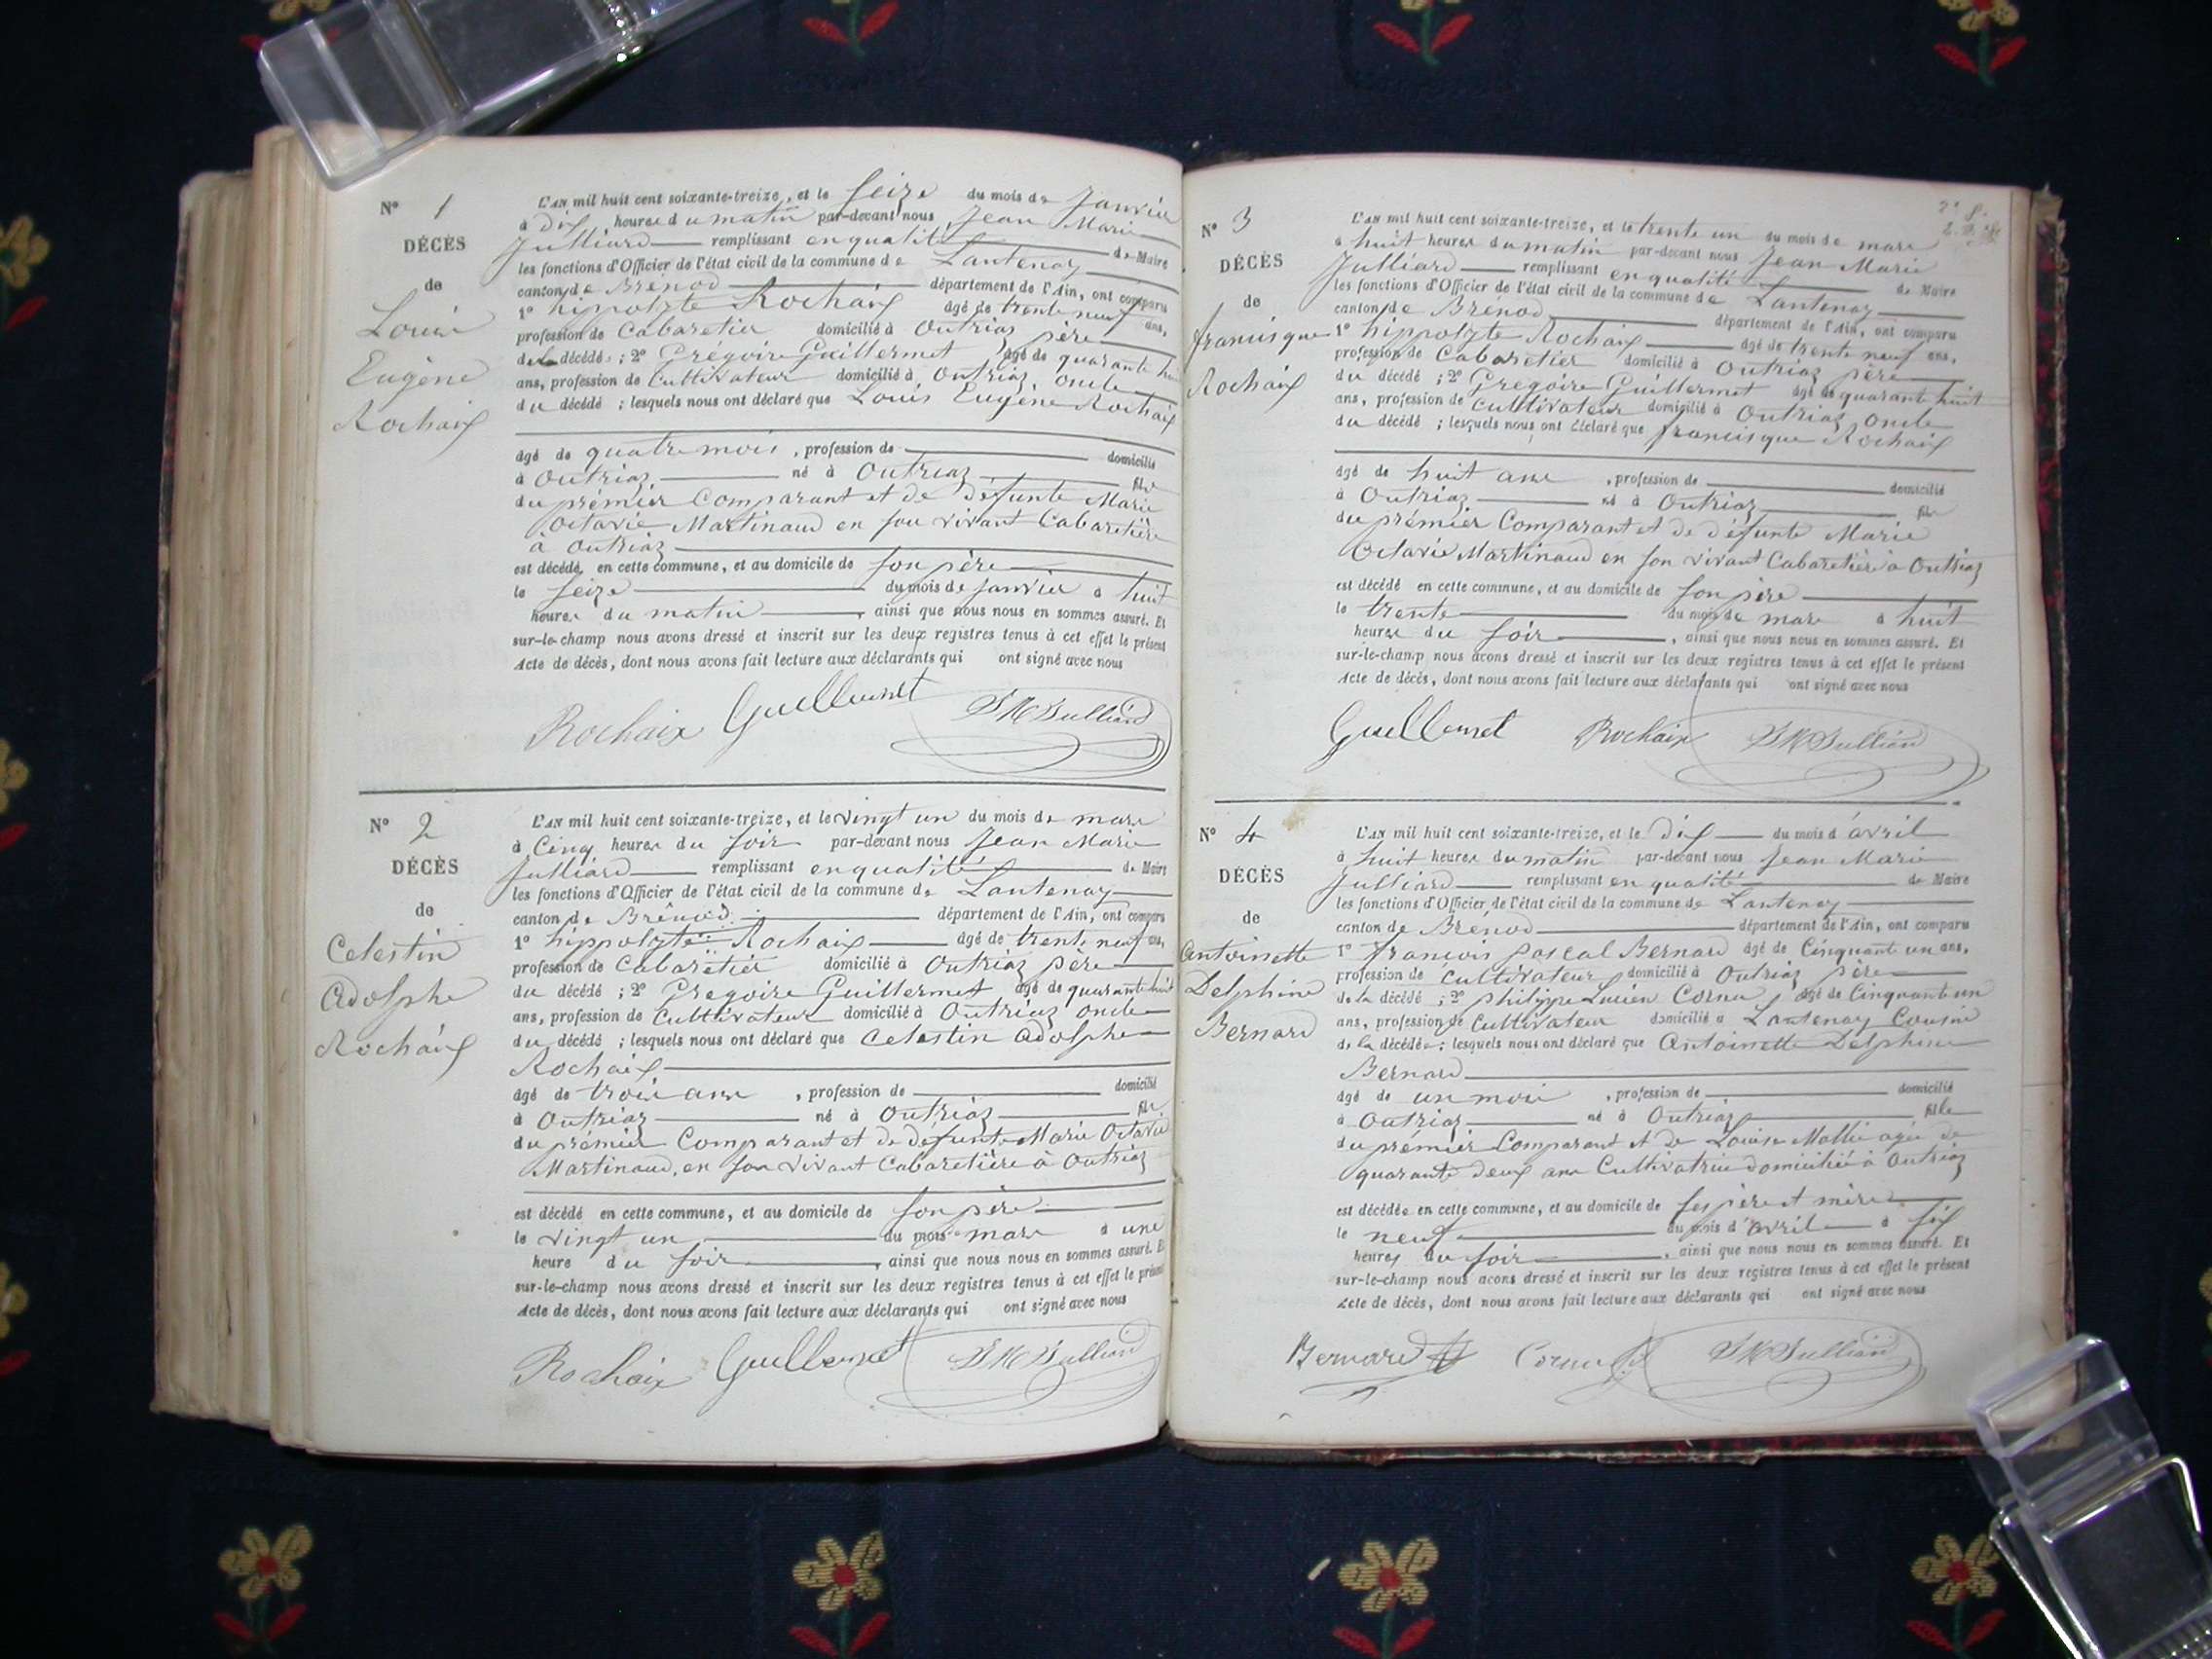 N° 1
DÉCÈS
de
Louis
Eugène
Rochaix
L'AN mil huit cent soixante-treize, et le seize du mois de Janvier
à dix heures du matin par-devant nous Jean Marie
Julliard remplissant en qualité de Maire
les fonctions d'Officier de l'état civil de la commune de Lantenay
canton de Brénod département de l'Ain, ont comparu
1° hippolyte Rochaix âgé de trente neuf ans,
profession de Cabaretier domicilié à Outriaz père
du décédé ; 2° Grégoire Guillermet âgé de quarante huit
ans, profession de Cultivateur domicilié à Outriaz, oncle
du décédé ; lesquels nous ont déclaré que Louis Eugène Rochaix
âgé de quatre mois , profession de domicilié
à Outriaz né à Outriaz fils
du prémier Comparant et de défunte Marie
Octavie Martinaud en son vivant Cabaretière
à Outriaz
est décédé en cette commune, et au domicile de son père
le seize du mois de janvier à huit
heures du matin , ainsi que nous nous en sommes assuré. Et
sur-le-champ nous avons dressé et inscrit sur les deux registres tenus à cet effet le présent
Acte de décès, dont nous avons fait lecture aux déclarants qui ont signé avec nous
Rochaix Guillermet JM Julliard
N° 2
DÉCÈS
de
Celestin
Adolphe
Rochaix
L'AN mil huit cent soixante-treize, et le vingt un du mois de mars
à Cinq heures du soir par-devant nous Jean Marie
Julliard remplissant en qualité de Maire
les fonctions d'Officier de l'état civil de la commune de Lantenay
canton de Brénod département de l'Ain, ont comparu
1° hippolyte Rochaix âgé de trente neuf ans,
profession de Cabaretier domicilié à Outriaz père
du décédé ; 2° Gregoire Guillermet âgé de quarante huit
ans, profession de Cultivateur domicilié à Outriaz oncle
du décédé ; lesquels nous ont déclaré que Celestin Adolphe
Rochaix
âgé de trois ans , profession de domicilié
à Outriaz né à Outriaz fils
du prémier Comparant et de défunte Marie Octavie
Martinaud, en son vivant Cabaretière à Outriaz
est décédé en cette commune, et au domicile de son père
le vingt un du mois mars à une
heure du soir , ainsi que nous nous en sommes assuré. Et
sur-le-champ nous avons dressé et inscrit sur les deux registres tenus à cet effet le présent
Acte de décès, dont nous avons fait lecture aux déclarants qui ont signé avec nous
Rochaix Guillermet JM Julliard
N° 3
DÉCÈS
de
francisque
Rochaix
L'AN mil huit cent soixante-treize, et le trente un du mois de mars
à huit heures du matin par-devant nous Jean Marie
Julliard remplissant en qualité de Maire
les fonctions d'Officier de l'état civil de la commune de Lantenay
canton de Brénod département de l'Ain, ont comparu
1° hippolyte Rochaix âgé de trente neuf ans,
profession de Cabaretier domicilié à Outriaz père
du décédé ; 2° Gregoire Guillermet âgé de quarante huit
ans, profession de Cultivateur domicilié à Outriaz oncle
du décédé ; lesquels nous ont déclaré que francisque Rochaix
âgé de huit ans , profession de domicilié
à Outriaz né à Outriaz fils
du prémier Comparant et de défunte Marie
Octavie Martinaud en son vivant Cabaretière à Outriaz
est décédé en cette commune, et au domicile de son père
le trente du mois de mars à huit
heures du soir , ainsi que nous nous en sommes assuré. Et
sur-le-champ nous avons dressé et inscrit sur les deux registres tenus à cet effet le présent
Acte de décès, dont nous avons fait lecture aux déclarants qui ont signé avec nous
Guillermet Rochaix JM Julliard
N° 4
DÉCÈS
de
Antoinette
Delphine
Bernard
L'AN mil huit cent soixante-treize, et le dix du mois d'avril
à huit heures du matin par-devant nous Jean Marie
Julliard remplissant en qualité de Maire
les fonctions d'Officier de l'état civil de la commune de Lantenay
canton de Brénod département de l'Ain, ont comparu
1° françois pascal Bernard âgé de Cinquant un ans,
profession de Cultivateur domicilié à Outriaz père
de la décédé ; 2° philippe Lucien Cornu âgé de Cinquante un
ans, profession de Cultivateur domicilié à Lantenay Cousin
de la décédée ; lesquels nous ont déclaré que Antoinette Delphine
Bernard
âgé de un mois , profession de domicilié
à Outriaz né à Outriaz fille
du prémier Comparant et de Louise Mollie agée de
quarante deux ans Cultivatrice domiciliée à Outriaz
est décédée en cette commune, et au domicile de ses père et mère
le neuf du mois d'avril à six
heures du soir , ainsi que nous nous en sommes assuré. Et
sur-le-champ nous avons dressé et inscrit sur les deux registres tenus à cet effet le présent
Acte de décès, dont nous avons fait lecture aux déclarants qui ont signé avec nous
Bernard Cornu JM Julliard